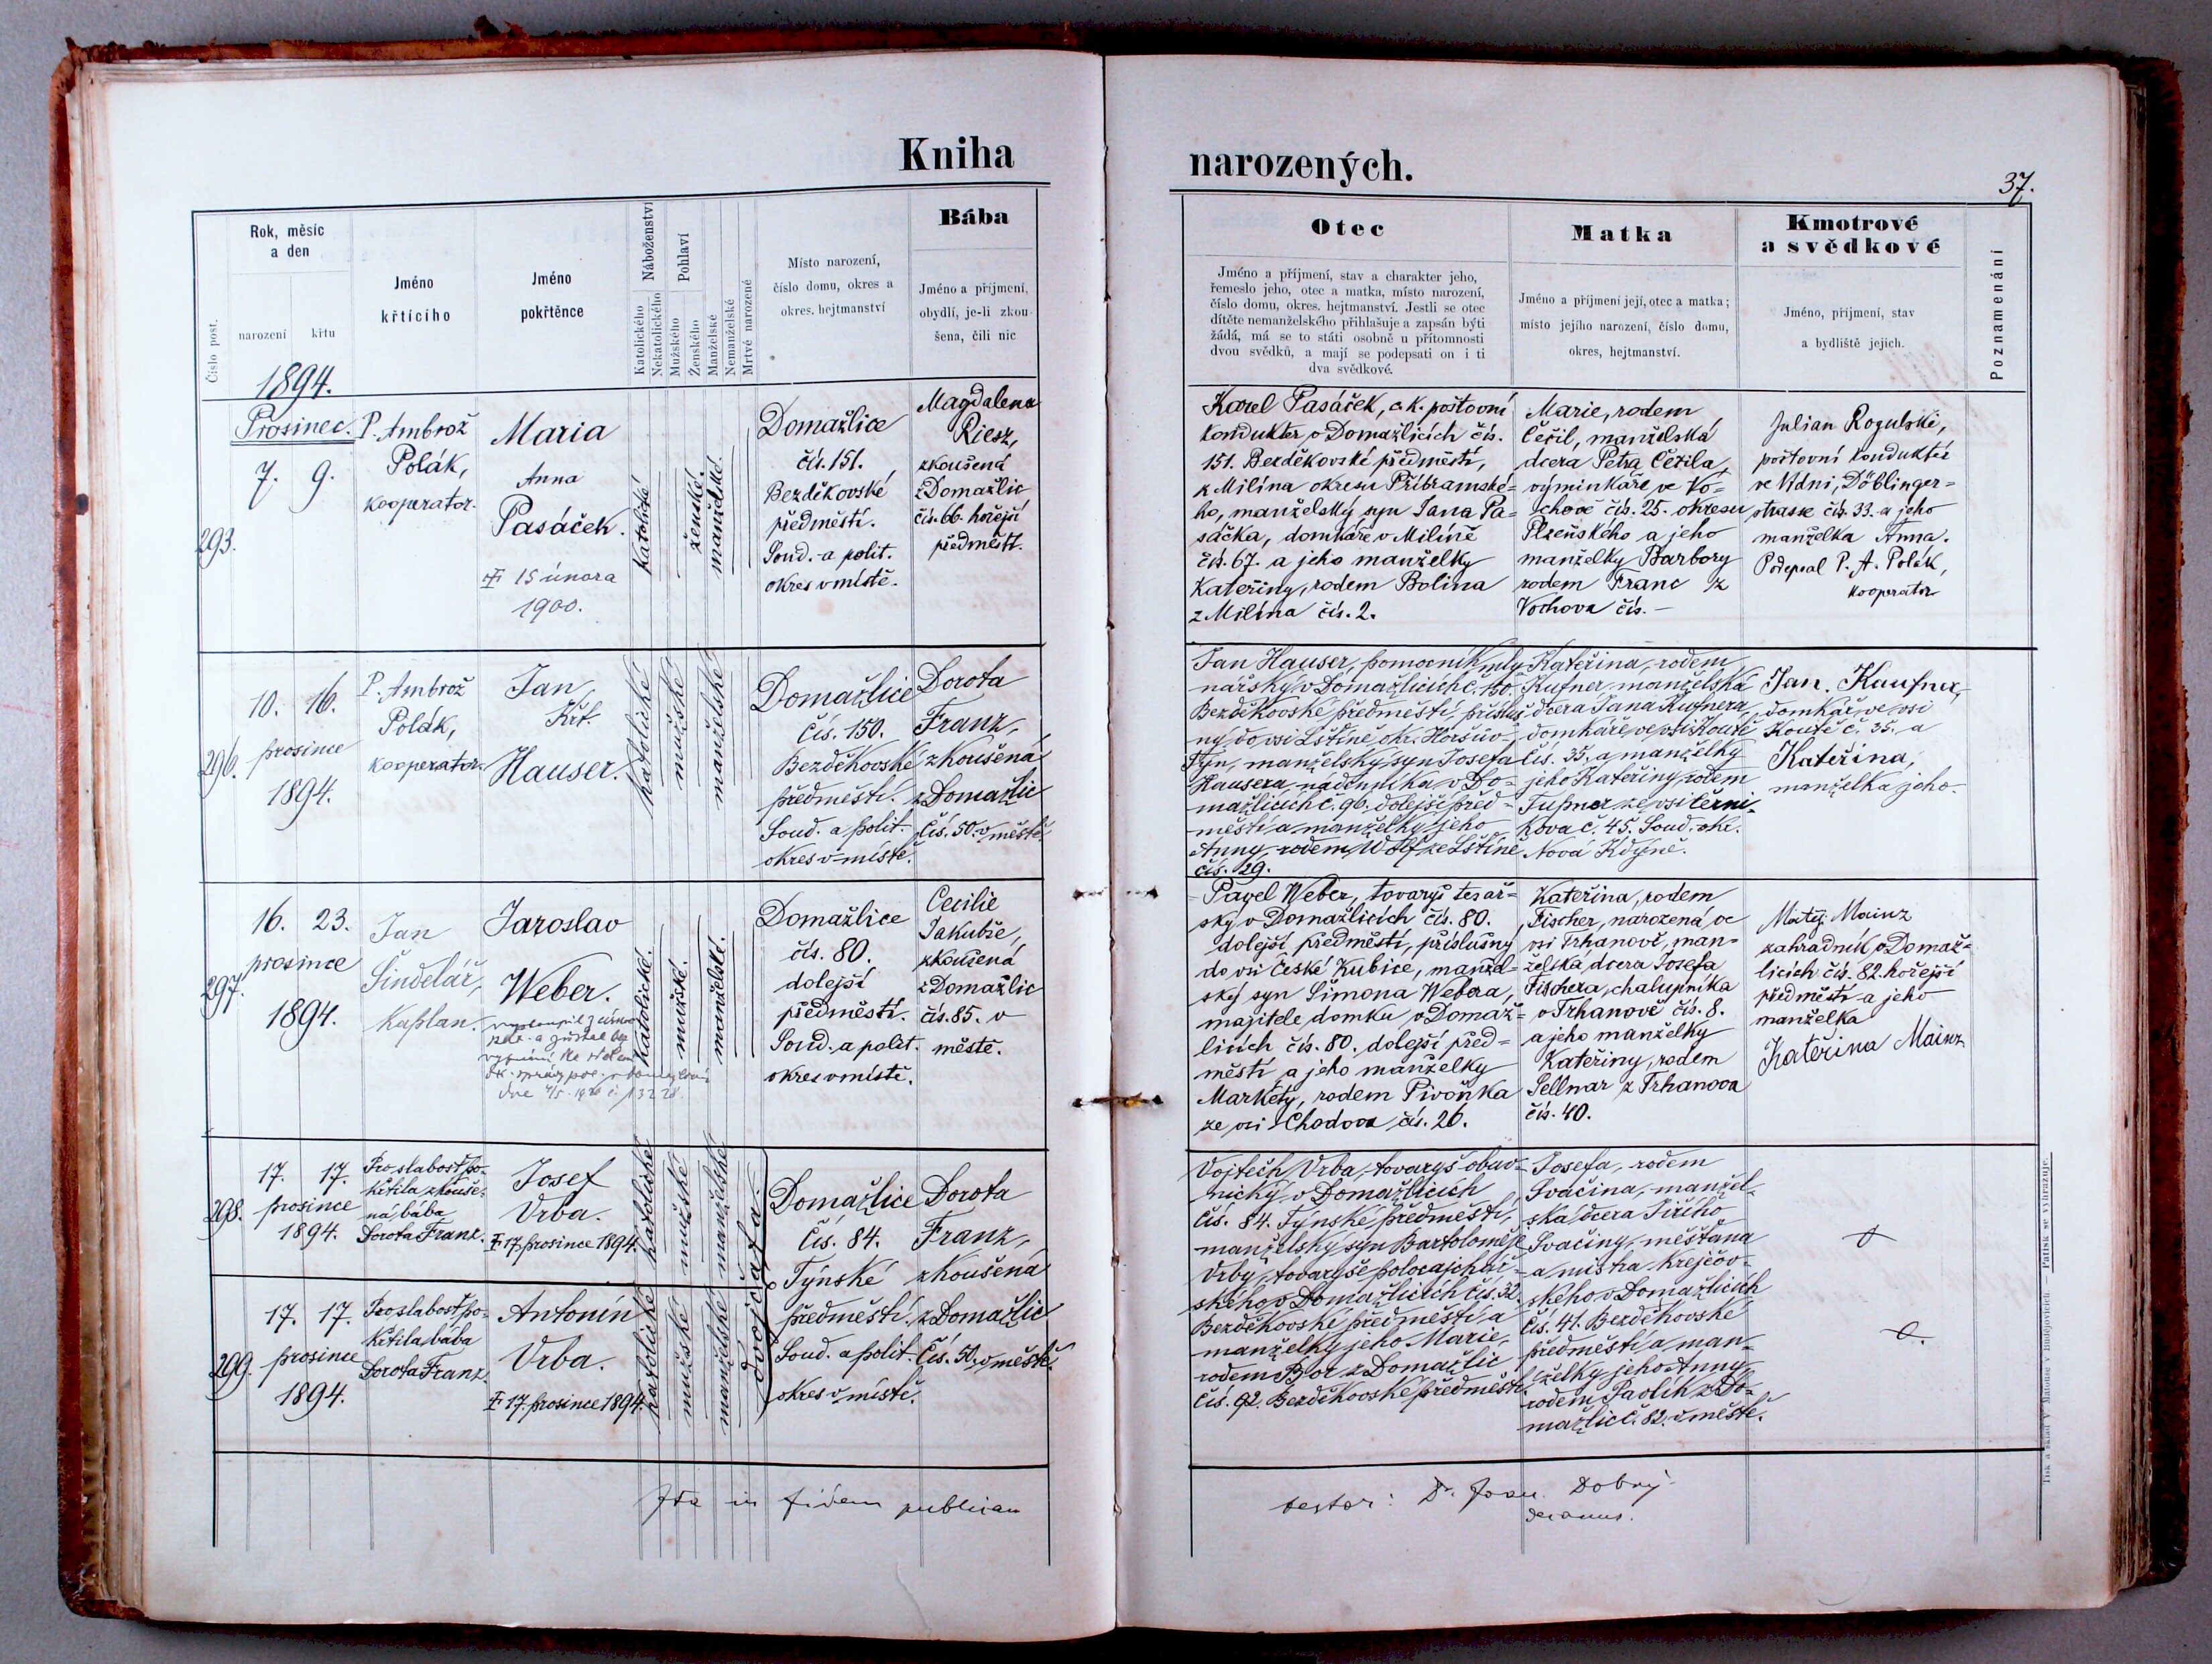 Kniha
narozených.
37.
Číslo post.
Rok, měsíc
a den
narození
křtu
Jméno
křtícího
Jméno
pokřtěnce
Náboženství
Katolického
Nekatolického
Pohlaví
Mužského
Ženského
Manželské
Nemanželské
Mrtvě narozené
Místo narození,
číslo domu, okres a
okres. hejtmanství
Bába
Jméno a příjmení,
obydlí, je-li zkou-
šena, čili nic
Otec
Jméno a příjmení, stav a charakter jeho,
řemeslo jeho, otec a matka, místo narození,
číslo domu, okres. hejtmanství. Jestli se otec
dítěte nemanželského přihlašuje a zapsán býti
žádá, má se to státi osobně u přítomnosti
dvou svědků, a mají se podepsati on i ti
dva svědkové.
Matka
Jméno a příjmení její, otec a matka;
místo jejího narození, číslo domu,
okres, hejtmanství.
Kmotrové
a svědkové
Jméno, příjmení, stav
a bydliště jejich.
Poznamenání
1894.
Prosinec.
7. 9.
293.
P. Ambrož
Polák,
kooperator.
Maria
Anna
Pasáček.
15 února
1900.
katolické
ženské.
manželské.
Domažlice
čís. 151.
Bezděkovské
předměstí.
Soud. a polit.
okres v místě.
Magdalena
Riesz,
zkoušená
z Domažlic
čís. 66. hořejší
předměstí.
Karel Pasáček, c. k. poštovní
kondukter v Domažlicích čís.
151. Bezděkovské předměstí,
z Milína okresu Příbramské-
ho, manželský syn Jana Pa-
sáčka, domkáře v Milíně
čís. 67. a jeho manželky
Kateřiny, rodem Bolina
z Milína čís. 2.
Marie, rodem
Čeřil, manželská
dcera Petra Čeřila,
výminkáře ve Vo-
chově čís. 25. okresu
Plzeňského a jeho
manželky Barbory
rodem Franc z
Vochova čís. –
Julian Rogulski,
poštovní konduktér
ve Vídni, Döblinger-
strasse čís. 33. a jeho
manželka Anna.
Podepsal P. A. Polák,
kooperator
296.
10. 16.
prosince
1894.
P. Ambrož
Polák,
kooperator.
Jan
Křt.
Hauser.
katolické
mužské
manželské
Domažlice
Čís. 150.
Bezděkovské
předměstí.
Soud. a polit.
okres v místě.
Dorota
Franz,
zkoušená
z Domažlic
Čís. 50. v městě.
Jan Hauser, pomocník mly-
nářský v Domažlicích č. 150.
Bezděkovské předměstí, přísluš-
ný do vsi Lštíně, okr. Horšův-
Týn, manželský syn Josefa
Hausera, nádenníka v Do-
mažlicích č. 96. dolejší před-
městí a manželky jeho
Anny, rodem Wolf ze Lštíně
čís. 29.
Kateřina, rodem
Kufner, manželská
dcera Jana Kufnera,
domkáře ve vsi Koutě
čís. 35. a manželky
jeho Kateřiny, rodem
Tupner ze vsi Černi-
kova č. 45. Soud. okr.
Nová Kdýně.
Jan Kaufner,
domkář ve vsi
Koutě č. 35. a
Kateřina,
manželka jeho.
297.
16. 23.
prosince
1894.
Jan
Šindelář,
Kaplan.
Jaroslav
Weber.
vystoupil z církve
a zůstal bez
vyznání
katolické.
mužské.
manželské.
Domažlice
čís. 80.
dolejší
předměstí.
Soud. a polit.
okres v místě.
Cecilie
Jakubše,
zkoušená
z Domažlic
čís. 85. v
městě.
Pavel Weber, tovaryš tesař-
ský v Domažlicích čís. 80.
dolejší předměstí, příslušný
do vsi České Kubice, manžel-
ský syn Šimona Webera,
majitele domku v Domaž-
licích čís. 80. dolejší před-
městí a jeho manželky
Markéty, rodem Pivoňka
ze vsi Chodova čís. 26.
Kateřina, rodem
Fischer, narozená ve
vsi Trhanově, man-
želská dcera Josefa
Fischera, chalupníka
v Trhanově čís. 8.
a jeho manželky
Kateřiny, rodem
Sellnar z Trhanova
čís. 40.
Matěj Mainz
zahradník v Domaž-
licích čís. 82. hořejší
předměstí a jeho
manželka
Kateřina Mainz
298.
17. 17.
prosince
1894.
Pro slabost po-
křtila zkouše-
ná bába
Dorota Franz.
Josef
Vrba.
17. prosince 1894.
katolické
mužské
manželské
dvojčata.
Domažlice
Čís. 84.
Týnské
předměstí.
Soud. a polit.
okres v místě.
Dorota
Franz,
zkoušená
z Domažlic
Čís. 50. v městě.
Vojtěch Vrba, tovaryš obuv-
nický v Domažlicích
čís. 84. Týnské předměstí,
manželský syn Bartoloměje
Vrby, tovaryše
ského v Domažlicích čís. 32.
Bezděkovské předměstí a
manželky jeho Marie,
rodem Bor z Domažlic
čís. 92. Bezděkovské předměstí.
Josefa, rodem
Svačina, manžel-
ská dcera Jiřího
Svačiny, měšťana
a mistra krejčov-
ského v Domažlicích
Čís. 41. Bezděkovské
předměstí a man-
želky jeho Anny,
rodem Pavlík z Do-
mažlic č. 82. v městě.
299.
17. 17.
prosince
1894.
Pro slabost po-
křtila bába
Dorota Franz.
Antonín
Vrba.
17. prosince 1894.
katolické
mužské
manželské
Ita in fidem publicam
testor: Dr. Joan. Dobrý
decanus.